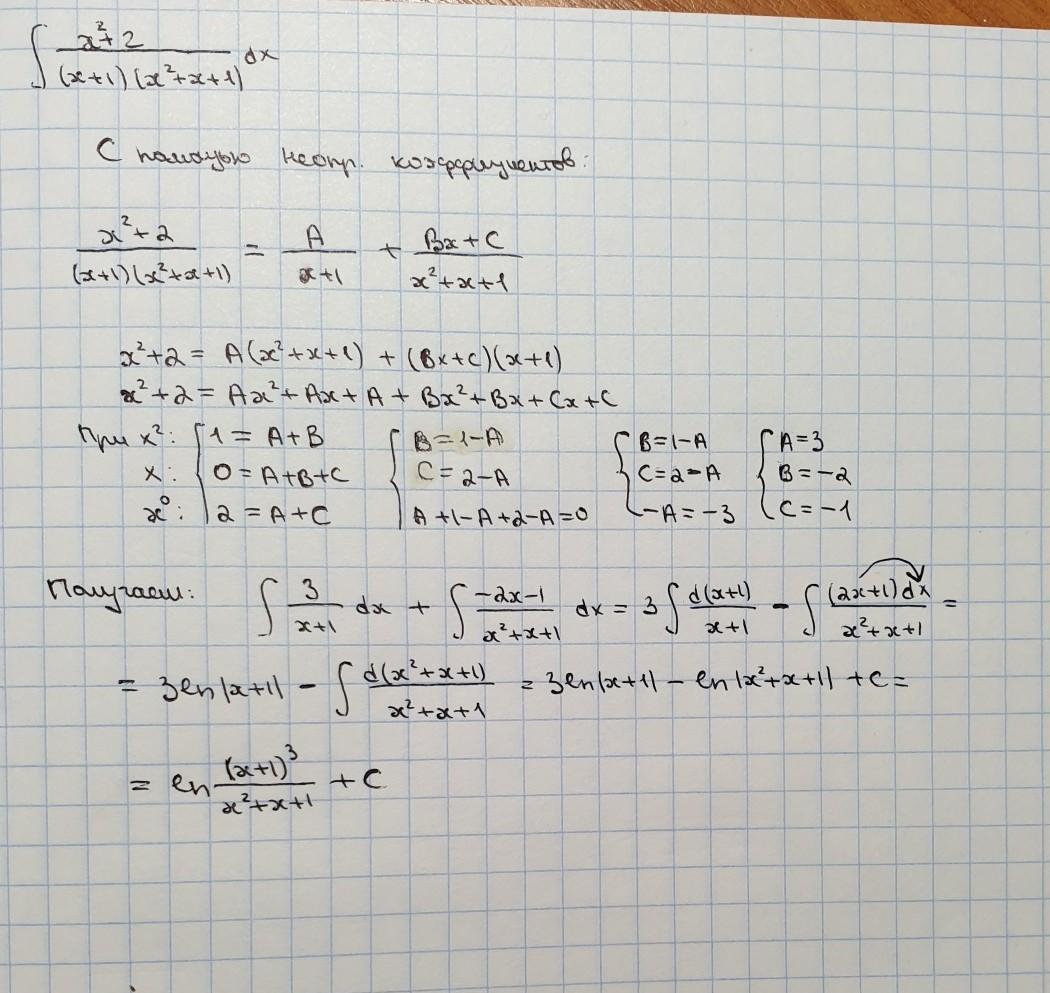 ∫ (x²+2)/((x+1)(x²+x+1)) dx
С помощью неопр. коэффициентов:
(x²+2)/((x+1)(x²+x+1)) = A/(x+1) + (Bx+C)/(x²+x+1)
x²+2 = A(x²+x+1) + (Bx+C)(x+1)
x²+2 = Ax²+Ax+A+Bx²+Bx+Cx+C
При x²: { 1=A+B { B=1-A { B=1-A { A=3
x: 0=A+B+C C=2-A C=2-A B=-2
x⁰: 2=A+C A+1-A+2-A=0 -A=-3 C=-1
Получаем: ∫ 3/(x+1) dx + ∫ (-2x-1)/(x²+x+1) dx = 3∫ d(x+1)/(x+1) - ∫ (2x+1)dx/(x²+x+1) =
= 3ln|x+1| - ∫ d(x²+x+1)/(x²+x+1) = 3ln|x+1| - ln|x²+x+1| + C =
= ln (x+1)³/(x²+x+1) + C